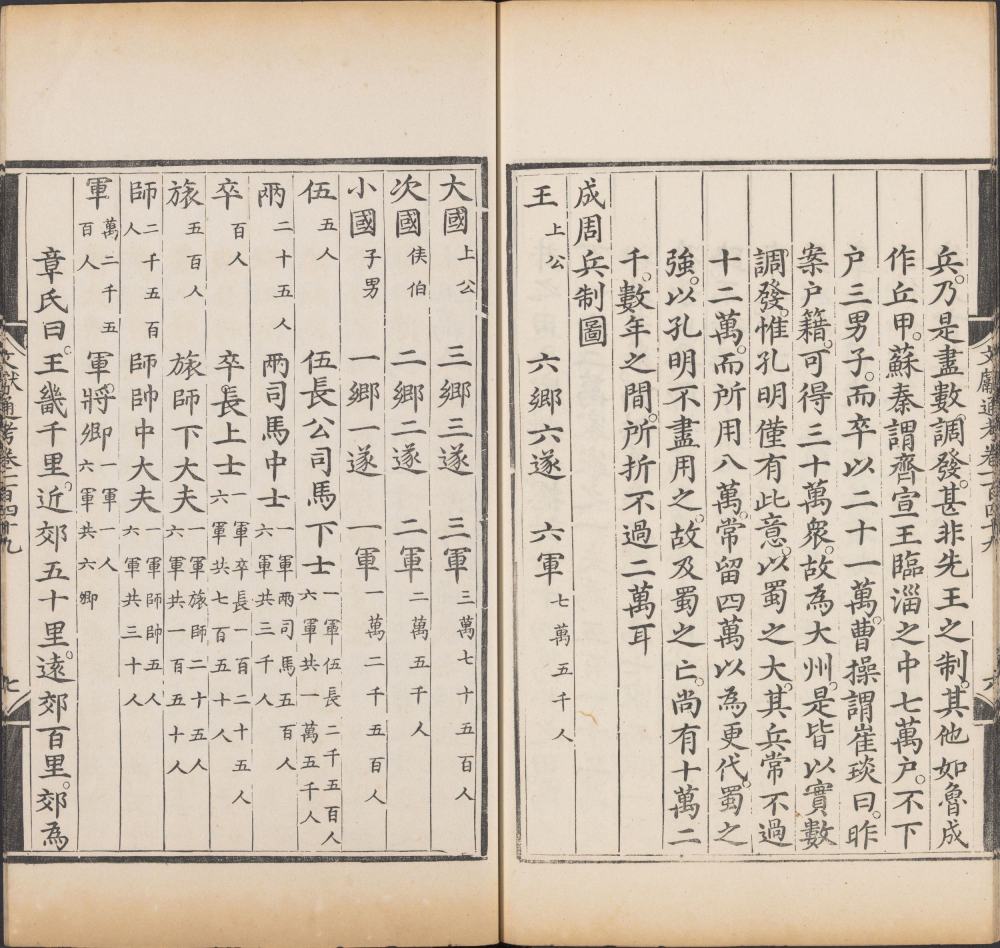 兵。乃是盡數調發。甚非先王之制。其他如魯成
作丘甲。蘇秦謂齊宣王臨淄之中七萬户。不下
户三男子。而卒以二十一萬。曹操謂崔琰曰。昨
案户籍。可得三十萬衆。故為大州。是皆以實數
調發。惟孔明僅有此意。以蜀之大。其兵常不過
十二萬。而所用八萬。常留四萬以為更代。蜀之
強。以孔明不盡用之。故及蜀之亡。尚有十萬二
千。數年之間。所折不過二萬耳
成周兵制圖
王 上公 六鄉六遂 六軍 七萬五千人
大國 上公 三鄉三遂 三軍 三萬七千五百人
次國 侯伯 二鄉二遂 二軍 二萬五千人
小國 子男 一鄉一遂 一軍 一萬二千五百人
伍 五人 伍長公司馬下士 一軍伍長二千五百人六軍共一萬五千人
兩 二十五人 兩司馬中士 一軍兩司馬五百人六軍共三千人
卒 百人 卒長上士 一軍卒長一百二十五人六軍共七百五十人
旅 五百人 旅師下大夫 一軍旅師二十五人六軍共一百五十人
師 二千五百人 師帥中大夫 一軍師帥五人六軍共三十人
軍 萬二千五百人 軍將卿 一軍一人六軍共六卿
章氏曰。王畿千里。近郊五十里。遠郊百里。郊為
文獻通考卷一百四十九
六
文獻通考卷一百四十九
七